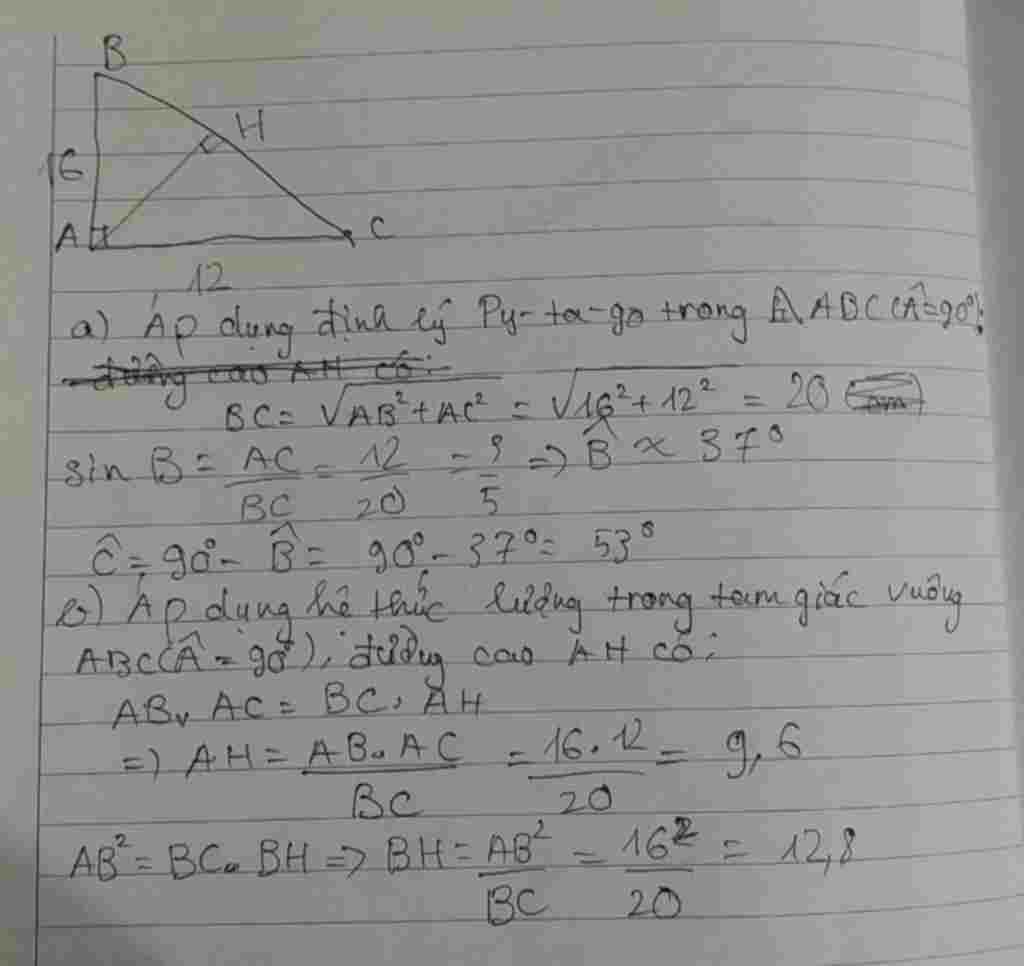 B
H
16
A
C
12
a) Áp dụng định lý Py-ta-go trong △ABC (Â=90°):
đường cao AH có:
BC = √AB²+AC² = √16²+12² = 20
sin B = AC/BC = 12/20 = 3/5 => B̂ ≈ 37°
Ĉ = 90° - B̂ = 90° - 37° = 53°
b) Áp dụng hệ thức lượng trong tam giác vuông
ABC (Â = 90°), đường cao AH có:
AB. AC = BC. AH
=> AH = AB. AC/BC = 16.12/20 = 9,6
AB² = BC. BH => BH = AB²/BC = 16²/20 = 12,8